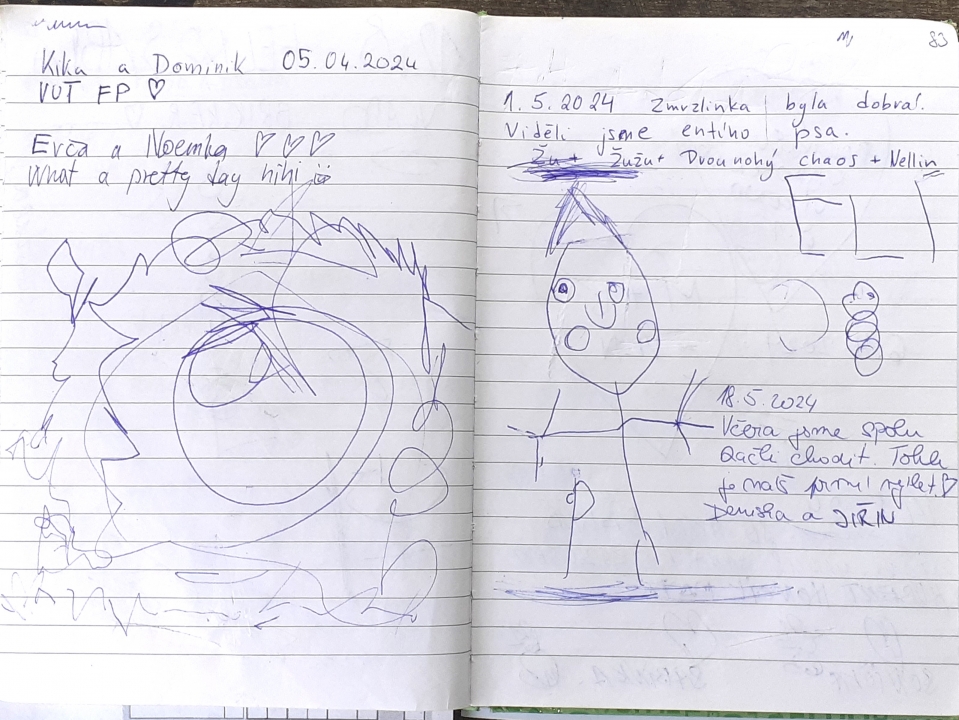 Kika a Dominik 05.04.2024
VUT FP ♡
Evča a Noemka ♡♡♡
What a pretty day hihi
83
1.5.2024 Zmrzlinka byla dobrá!
Viděli jsme entino psa.
Žužu + Dvounohý chaos + Nellin
18.5.2024
Včera jsme spolu
začli chodit. Tohle
je náš první výlet ♡
Deniska a JIŘIN